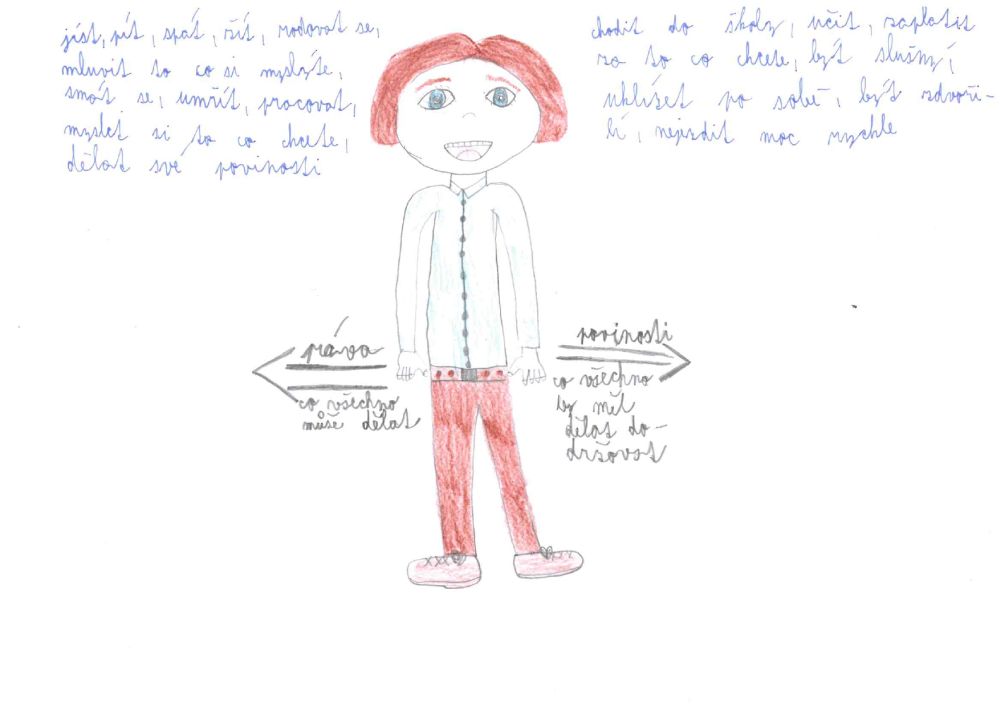 jíst, pít, spát, žít, radovat se,
mluvit to co si myslíte,
smát se, umřít, pracovat,
myslet si to co chcete,
dělat své povinosti
chodit do školy, učit, zaplatit
za to co chcete, být slušný,
uklízet po sobě, být zdvoři-
lí, nejezdit moc rychle
práva
co všechno
může dělat
povinosti
co všechno
by měl
dělat do-
držovat